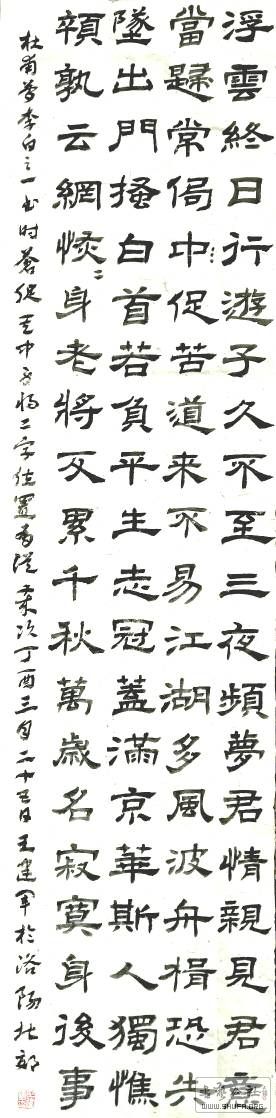 浮雲終日行遊子久不至三夜頻夢君情親見君意
當歸常侷中促苦道来不易江湖多風波舟楫恐失
墜出門搔白首若負平生志冠蓋滿京華斯人獨憔
顇孰云網恢〻身老將反累千秋萬歲名寂寞身後事
杜甫夢李白之一书时蒼促二字位置歲次丁酉三月二十五日王建军於洛陽北郊
WWW.SHUFA.ORG